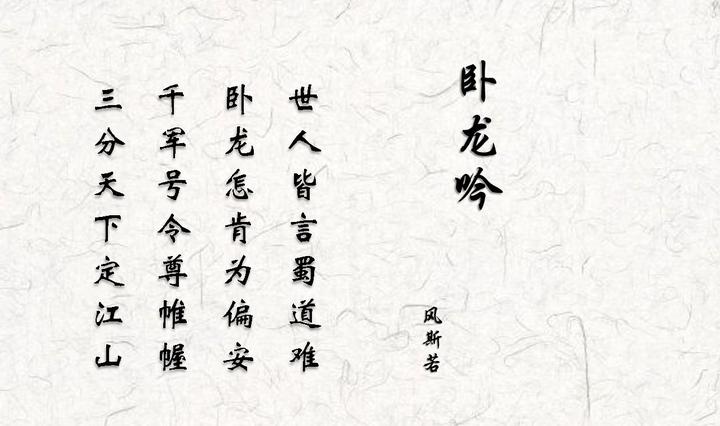 卧龙吟
风斯若
世人皆言蜀道难
卧龙怎肯为偏安
千军号令尊帷幄
三分天下定江山